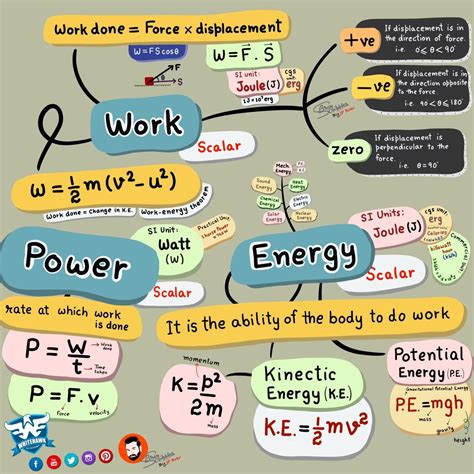 Work done = Force × displacement
W = FS cosθ
F
S
W = F⃗ . S⃗
SI unit:
Joule (J)
cgs unit
erg
1J = 10⁷ erg
+ve
If displacement is in
the direction of force.
i.e. 0 ≤ θ < 90°
-ve
If displacement is in
the direction opposite
to the force.
i.e. 90 < θ ≤ 180
zero
If displacement is
perpendicular to the
force.
i.e. θ = 90°
Work
Scalar
W = 1/2 m (v² - u²)
Work done = Change in K.E.
Work-energy theorem
Mech. Energy
Sound Energy
Heat Energy
Chemical Energy
Electric Energy
Solar Energy
Nuclear Energy
Power
SI Unit:
Watt
(W)
Practical Unit
Scalar
Energy
SI Units:
Joule (J)
cgs unit
erg
Kilowatt
hour
(kWh)
Scalar
rate at which work
is done
P = W/t
Work done
Time taken
P = F.v
Force
velocity
It is the ability of the body to do work
momentum
K = p²/2m
mass
Kinectic
Energy (K.E.)
K.E. = 1/2 mv²
Potential
Energy (P.E.)
Gravitational Potential Energy
P.E. = mgh
mass
height
WHITEHAWK